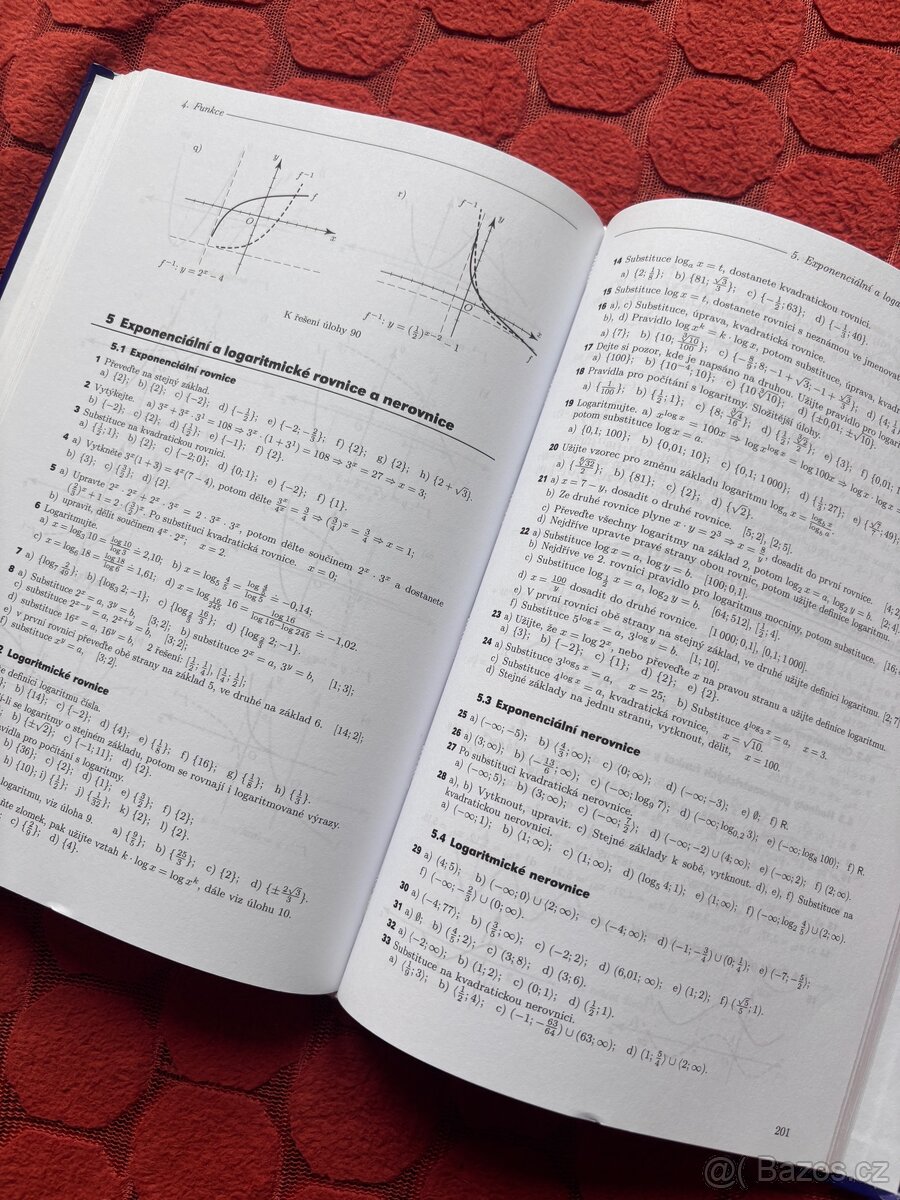 4. Funkce
q)
y
f⁻¹
f
O
x
f⁻¹, y = 2ˣ − 4
r)
f⁻¹
y
O
x
f⁻¹, y = (1/2)ˣ⁻² − 1
f
K řešení úlohy 90
5 Exponenciální a logaritmické rovnice a nerovnice
5.1 Exponenciální rovnice
1 Převeďte na stejný základ.
a) {2}; b) {2}; c) {−2}; d) {−1/2}; e) {−2; −2/3}; f) {2}; g) {2}; h) {2 + √3}.
2 Vytýkejte. a) 3ˣ + 3ˣ · 3¹ = 108 ⇒ 3ˣ · (1 + 3¹) = 108 ⇒ 3ˣ = 27 ⇒ x = 3;
b) {−2}; c) {2}; d) {1/2}; e) {−1}; f) {2}.
3 Substituce na kvadratickou rovnici.
a) {1/2; 1}; b) {2}; c) {−2; 0}; d) {0; 1}; e) {−2}; f) {1}.
4 a) Vytkněte 3ˣ(1 + 3) = 4ˣ(7 − 4), potom dělte 3ˣ/4ˣ = 3/4 ⇒ (3/4)ˣ = 3/4 ⇒ x = 1;
b) {3}; c) {3/5}; d) {2}.
5 a) Upravte 2ˣ · 2ˣ + 2ˣ · 3ˣ = 2 · 3ˣ · 3ˣ, potom dělte součinem 2ˣ · 3ˣ a dostanete
(2/3)ˣ + 1 = 2 · (3/2)ˣ. Po substituci kvadratická rovnice. x = 0;
b) upravit, dělit součinem 4ˣ · 2ˣ, x = 2.
6 Logaritmujte.
a) x = log₃ 10 = log 10/log 3 ≐ 2,10; b) x = log₅ 4/5 = log 4/5/log 5 ≐ −0,14;
c) x = log₆ 18 = log 18/log 6 ≐ 1,61; d) x = log 16/245 16 = log 16/log 16−log 245 ≐ −1,02.
7 a) {log₇ 2/49}; b) {log₅ 2; −1}; c) {log 3/8 16/3}; d) {log 3/2 2; −1}.
8 a) Substituce 2ˣ = a, 3ʸ = b, [3; 2]; b) substituce 2ˣ = a, 3ʸ = b, [1; 3];
c) substituce 2ˣ⁻ʸ = a, 2ˣ⁺ʸ = b, [3; 2];
d) substituce 16ˣ = a, 16ʸ = b, 2 řešení: [1/2; 1/4], [1/4; 1/2];
e) v první rovnici převeďte obě strany na základ 5, ve druhé na základ 6. [14; 2];
f) substituce xʸ = a, [3; 2].
2 Logaritmické rovnice
definici logaritmu čísla.
b) {14}; c) {−2}; d) {4}; e) {1/8}; f) {16}; g) {1/8}; h) {1/3}.
-li se logaritmy o stejném základu, potom se rovnají i logaritmované výrazy.
b) {±√2}; c) {−1; 11}; d) {2}.
pro počítání s logaritmy.
b) {36}; c) {2}; d) {1}; e) {3/2}; f) {2}.
b) {10}; i) {1/2}; j) {1/32}; k) {2}; l) {2}.
logaritmu, viz úloha 9.
a) {9/5}; b) {25/3}; c) {2}; d) {± 2√3/3}.
zlomek, pak užijte vztah k · log x = log xᵏ, dále viz úlohu 10.
d) {4}.
5. Exponenciální a loga
14 Substituce logₐ x = t, dostanete kvadratickou rovnici.
a) {2; 1/8}; b) {81; √3/3}; c) {−1/2; 63}; d) {−1/3; 40}.
15 Substituce log x = t, dostanete rovnici s neznámou ve jmenovat
16 a), c) Substituce, úprava, kvadratická rovnice.
b), d) Pravidlo log xᵏ = k · log x, potom substituce, úprava, kvadrat
17 Dejte si pozor, kde je napsáno na druhou. Užijte pravidlo pro logar
18 Pravidla pro počítání s logaritmy. Složitější úlohy.
19 Logaritmujte. a) xˡᵒᵍ ˣ = 100x ⇒ log xˡᵒᵍ ˣ = log 100x ⇒ log x · log x
potom substituce log x = a.
a) {0,1; 100}; b) {0,01; 10}; c) {0,1; 1 000}; d) {1/3; 27};
20 Užijte vzorec pro změnu základu logaritmu
b) {81}; c) {2}; d) {√2}.
21 a) x = 7 − y, dosadit o druhé rovnice. [5; 2], [2; 5].
b) Ze druhé rovnice plyne x · y = 2³ ⇒ x = 8/y, dosadit do první rovnice.
c) Převeďte všechny logaritmy na základ 2, potom log₂ x = a, log₂ y = b.
d) Nejdříve upravte pravé strany obou rovnic, potom užijte definice logaritmu.
22 a) Substituce log x = a, log y = b. [100; 0,1].
b) Nejdříve ve 2. rovnici pravidlo pro logaritmus mocniny, potom substituce.
[64; 512], [1/2; 4].
d) x = 100/y dosadit do druhé rovnice. [1 000; 0,1], [0,1; 1 000].
e) V první rovnici obě strany na stejný základ, ve druhé užijte definici logaritmu.
f) Substituce 5ˡᵒᵍ ˣ = a, 3ˡᵒᵍ ʸ = b. [1; 10].
23 a) Užijte, že x = log 2ˣ, nebo převeďte x na pravou stranu a užijte definice logaritmu.
a) {3}; b) {−2}; c) {1}; d) {2}; e) {2}.
24 a) Substituce 3ˡᵒᵍ⁵ ˣ = a, x = 25; b) Substituce 4ˡᵒᵍ³ ˣ = a, x = 3.
c) Substituce 4ˡᵒᵍ ˣ = a, kvadratická rovnice, x = √10.
d) Stejné základy na jednu stranu, vytknout, dělit, x = 100.
5.3 Exponenciální nerovnice
25 a) (−∞; −5); b) (4/3; ∞); c) (0; ∞); d) (−∞; −3); e) ∅; f) R.
26 a) (3; ∞); b) (−13/6; ∞); c) (−∞; log₉ 7); d) (−∞; log₀,₂ 3); e) (−∞; log₅ 100); f) R.
27 Po substituci kvadratická nerovnice.
a) (−∞; 5); b) (3; ∞); c) (−∞; 7/2); d) (−∞; −2) ∪ (4; ∞); e) (−∞; 2); f) (2; ∞).
28 a), b) Vytknout, upravit. c) Stejné základy k sobě, vytknout. d), e), f) Substituce na
kvadratickou nerovnici.
a) (−∞; 1); b) (1; ∞); c) (1; ∞); d) (log₅ 4; 1); e) (1; ∞); f) (−∞; log₂ 4/5) ∪ (2; ∞).
5.4 Logaritmické nerovnice
29 a) (4; 5); b) (−∞; 0) ∪ (2; ∞); c) (−4; ∞); d) (−1; −3/4) ∪ (0; 1/4); e) (−7; −5/2);
f) (−∞; −2/3) ∪ (0; ∞).
30 a) (−4; 77); b) (3/5; ∞); c) (−2; 2); d) (6,01; ∞); e) (1; 2); f) (√5/5; 1).
31 a) ∅; b) (4/5; 2); c) (3; 8); d) (3; 6).
32 a) (−2; ∞); b) (1; 2); c) (0; 1); d) (1/2; 1).
33 Substituce na kvadratickou nerovnici.
a) (1/9; 3); b) (1/2; 4); c) (−1; −63/64) ∪ (63; ∞); d) (1; 5/4) ∪ (2; ∞).
201
@( Bazos.cz